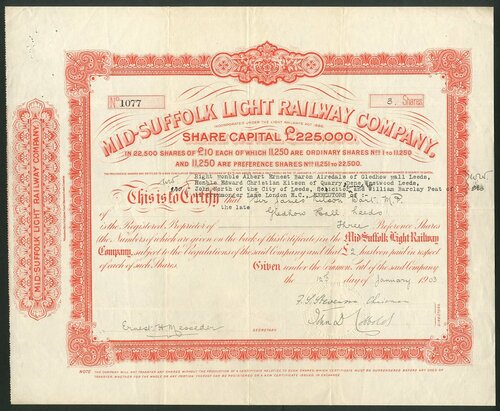 No 1077
3. Shares
MID-SUFFOLK LIGHT RAILWAY COMPANY.
INCORPORATED UNDER THE LIGHT RAILWAYS ACT 1896.
SHARE CAPITAL £225,000.
IN 22,500 SHARES OF £10 EACH OF WHICH 11,250 ARE ORDINARY SHARES Nos 1 TO 11,250
AND 11,250 ARE PREFERENCE SHARES Nos 11,251 TO 22,500.
Albert Ernest Baron Airedale of Gledhow Hall Leeds,
Edward Christian Kitson of Quarry Dene Weetwood Leeds,
John North of the City of Leeds, Solicitor and William Barclay Peat of
Lane London E.C., EXECUTORS of
This is to Certify that Sir James Kitson Bart. M.P.
the late
Gledhow Hall Leeds
is the Registered Proprietor of Three Preference Shares
the Numbers of which are given on the back of this Certificate in the Mid Suffolk Light Railway
Company, subject to the Regulations of the said Company and that £2 has been paid in respect
of each of such Shares. Given under the Common Seal of the said Company
the 12th day of January 1903
F. S. Stevenson Chairman
John D Cobbold
Ernest H Messeder
SECRETARY.
NOTE THE COMPANY WILL NOT TRANSFER ANY SHARES WITHOUT THE PRODUCTION OF A CERTIFICATE RELATING TO SUCH SHARES, WHICH CERTIFICATE MUST BE SURRENDERED BEFORE ANY DEED OF
TRANSFER, WHETHER FOR THE WHOLE OR ANY PORTION THEREOF CAN BE REGISTERED OR A NEW CERTIFICATE ISSUED IN EXCHANGE
MID-SUFFOLK LIGHT RAILWAY COMPANY.